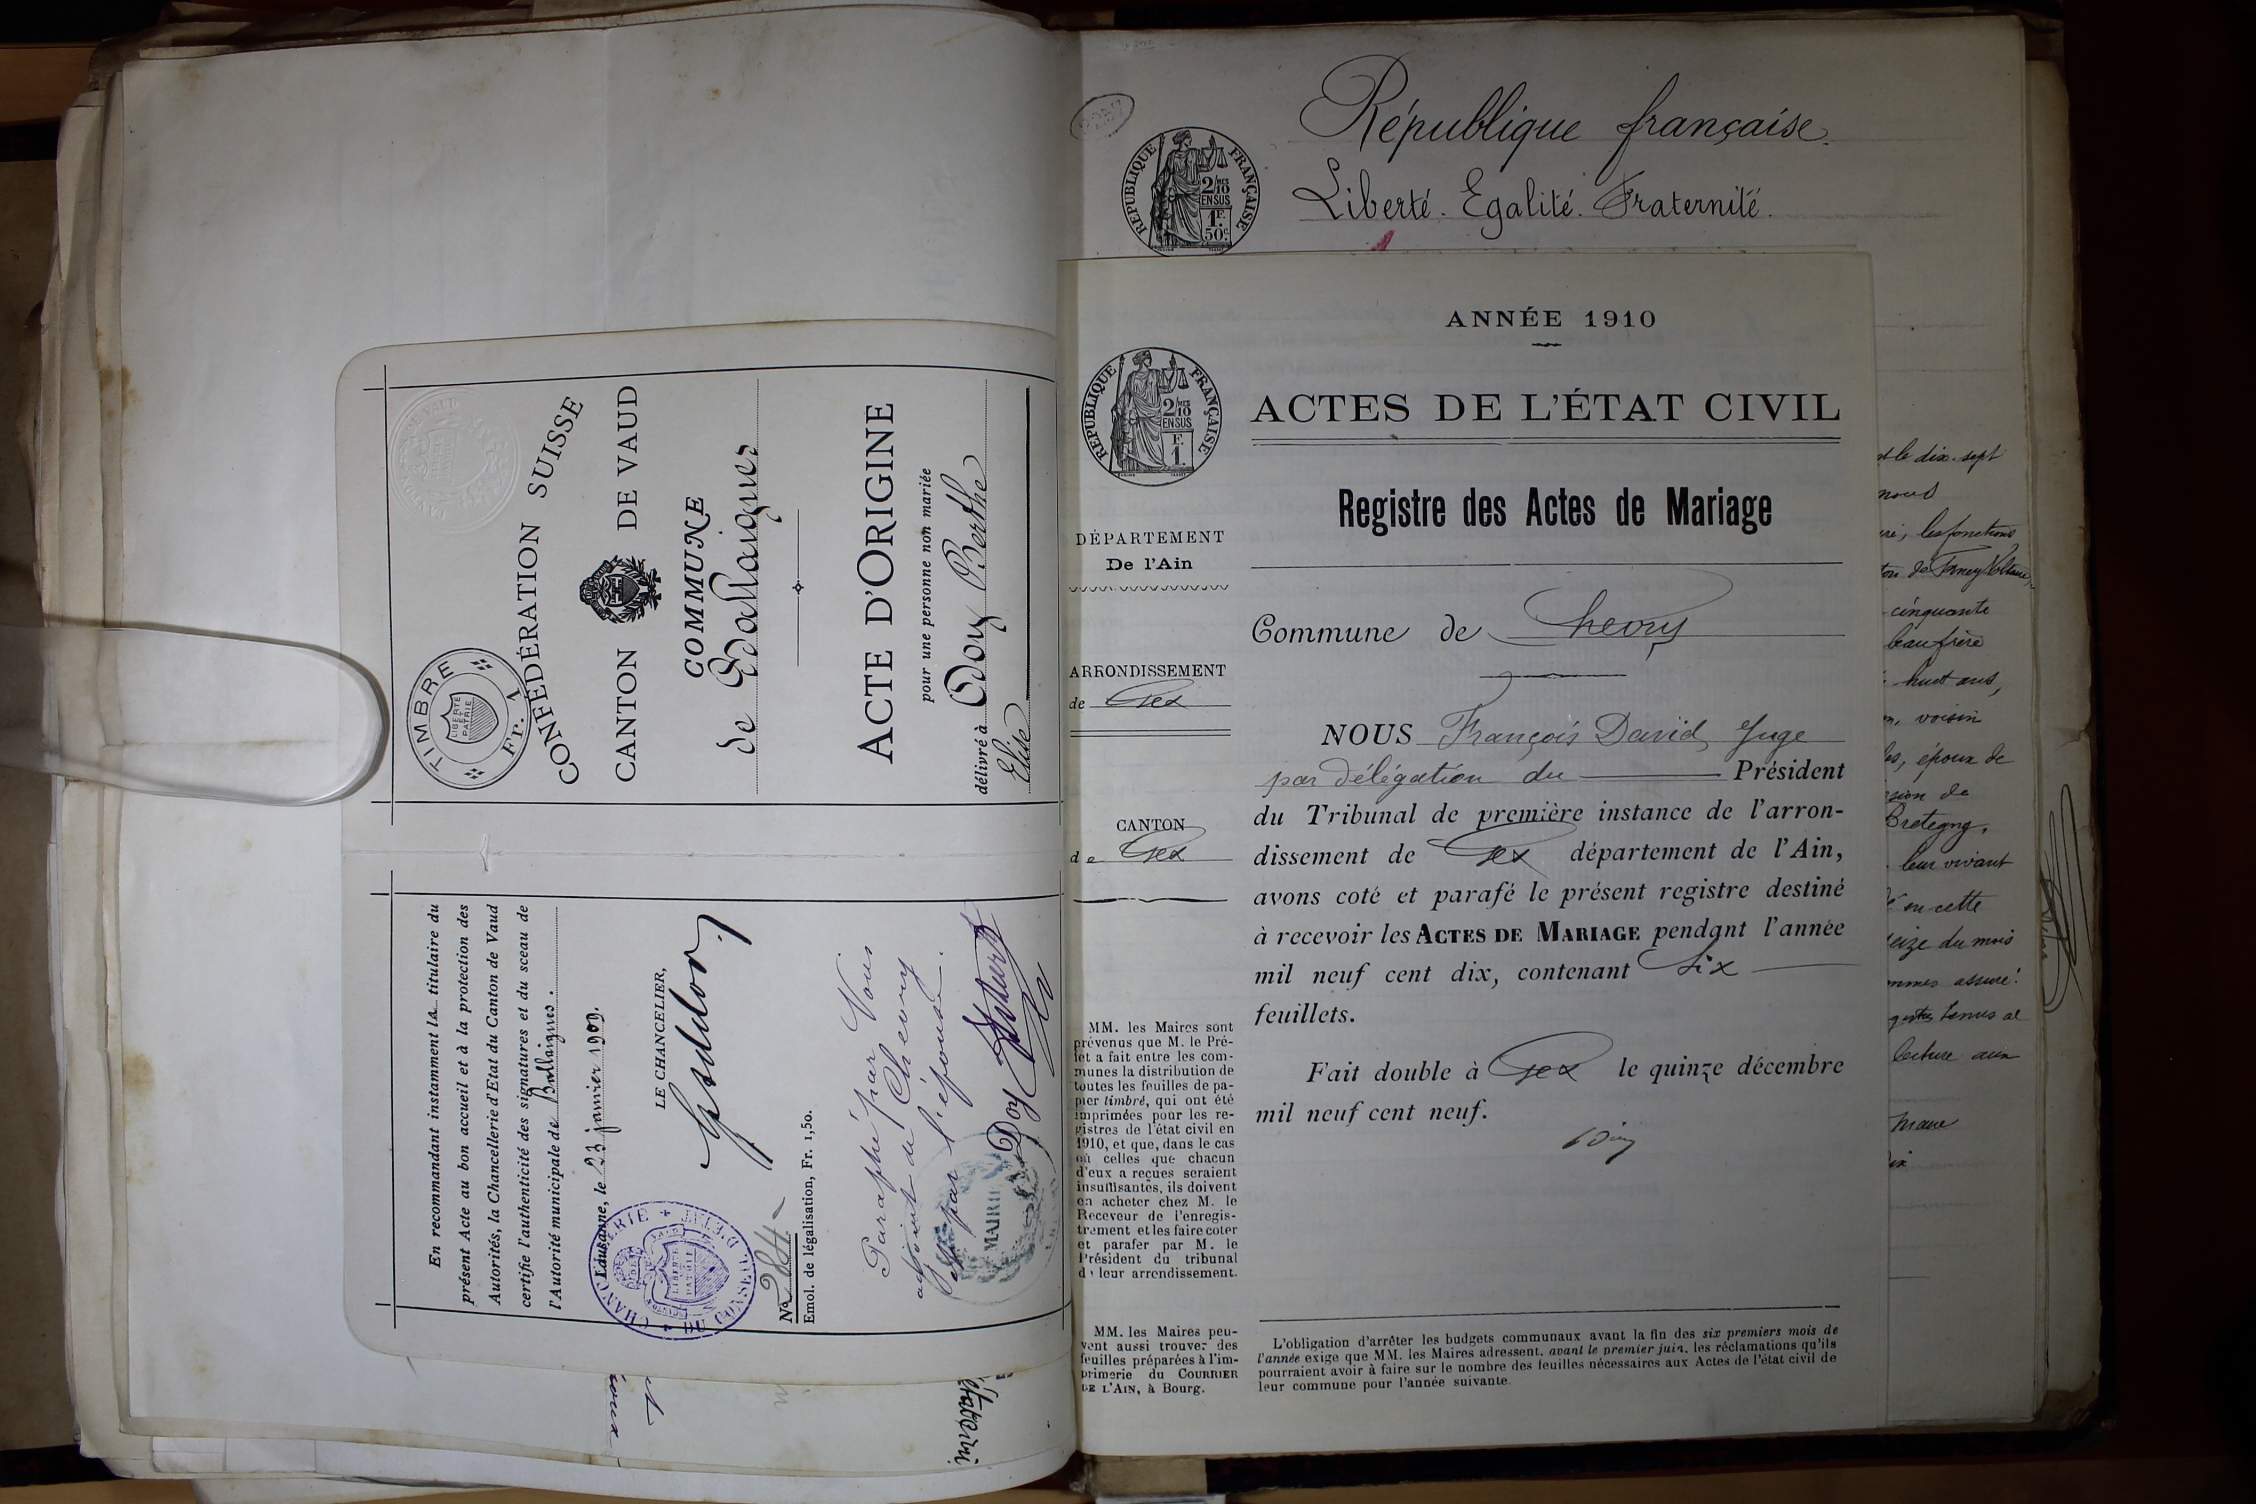 TIMBRE
LIBERTÉ ET PATRIE
Fr. 1
CONFÉDÉRATION SUISSE
CANTON DE VAUD
COMMUNE
de Ballaigues
ACTE D'ORIGINE
pour une personne non mariée
délivré à Doy Berthe
Elise
En recommandant instamment la titulaire du
présent Acte au bon accueil et à la protection des
Autorités, la Chancellerie d'Etat du Canton de Vaud
certifie l'authenticité des signatures et du sceau de
l'Autorité municipale de Ballaigues.
Lausanne, le 23 janvier 1909.
LE CHANCELIER,
No 284
Emol. de légalisation, Fr. 1,50.
Paraphé par Nous
adjoint de Chevry
et par l'épouse.
Doy
MAIRIE
République française.
Liberté. Egalité. Fraternité.
RÉPUBLIQUE FRANÇAISE
2/10 MES
EN SUS
1 F.
50 c
ANNÉE 1910
ACTES DE L'ÉTAT CIVIL
RÉPUBLIQUE FRANÇAISE
2/10 MES
EN SUS
F.
1.
Registre des Actes de Mariage
DÉPARTEMENT
De l'Ain
ARRONDISSEMENT
de Gex
CANTON
de Gex
Commune de Chevry
NOUS François David, Juge
par délégation du Président
du Tribunal de première instance de l'arron-
dissement de Gex département de l'Ain,
avons coté et parafé le présent registre destiné
à recevoir les ACTES DE MARIAGE pendant l'année
mil neuf cent dix, contenant Six
feuillets.
Fait double à Gex le quinze décembre
mil neuf cent neuf.
MM. les Maires sont
prévenus que M. le Pré-
fet a fait entre les com-
munes la distribution de
toutes les feuilles de pa-
pier timbré, qui ont été
imprimées pour les re-
gistres de l'état civil en
1910, et que, dans le cas
où celles que chacun
d'eux a reçues seraient
insuffisantes, ils doivent
en acheter chez M. le
Receveur de l'enregis-
trement et les faire coter
et parafer par M. le
Président du tribunal
de leur arrondissement.
MM. les Maires peu-
vent aussi trouver des
feuilles préparées à l'im-
primerie du COURRIER
DE L'AIN, à Bourg.
L'obligation d'arrêter les budgets communaux avant la fin des six premiers mois de
l'année exige que MM. les Maires adressent, avant le premier juin, les réclamations qu'ils
pourraient avoir à faire sur le nombre des feuilles nécessaires aux Actes de l'état civil de
leur commune pour l'année suivante.
le dix-sept
nous
les fonctions
de Ferney Voltaire,
cinquante
beau frère
huit ans,
voisin
époux de
de
Bretegny,
leur vivant
en cette
seize du mois
assuré
tenus al
lecture aux